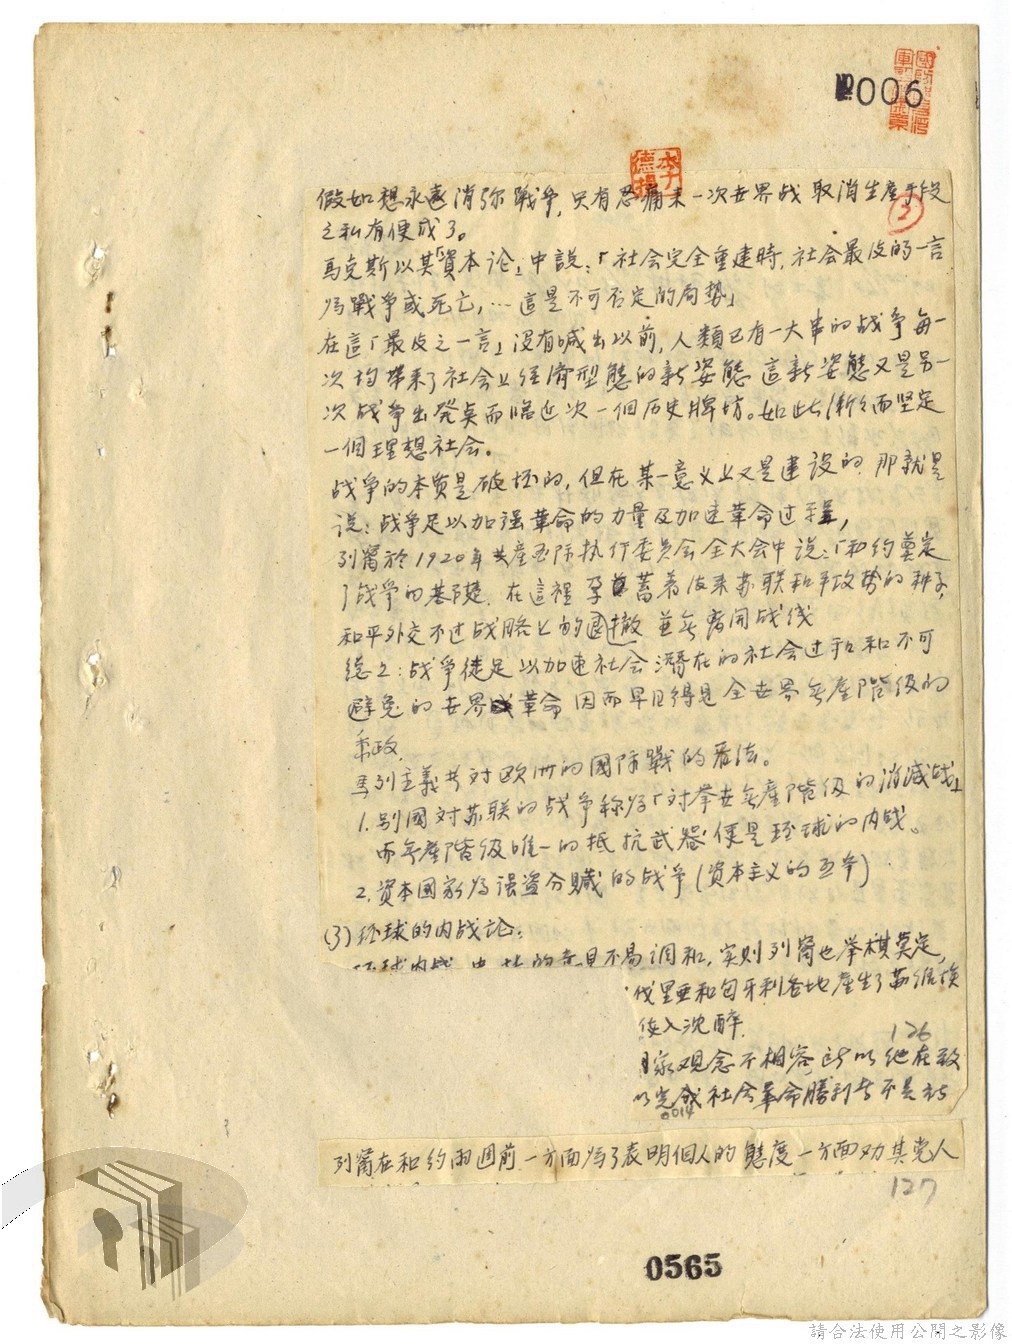 006
李
德
3
假如想永遠消弥戰争，只有忍痛来一次世界战 取消生産手段
之私有便成了。
馬克斯以其「資本论」中説：「社会完全重建時，社会最后的一言
为戰争或死亡，…這是不可否定的局势」
在這「最后之一言」没有喊出以前，人類已有一大串的战争每一
次均帶来了社会上经濟型態的新姿態 這新姿態又是另一
次战争出発点而临近次一個历史牌坊。如此漸々而坚定
一個理想社会。
战争的本質是破坏的，但在某一意义上又是建设的，那就是
说：战争足以加强革命的力量及加速革命过程，
列甯於1920年共産国际执行委员会全大会中说：「和约奠定
了战争的基礎，在這裡孕蓄着后来苏联和平攻势的种子，
和平外交不过战略上的撤 並無离開战线
總之：战争徒足以加速社会潛在的社会过和不可
避免的世界革命 因而早日得見全世界無産階级的
秉政。
馬列主義者对欧洲的國际戰的看法。
1. 别國对苏联的战争称为「对举世無産階级的消滅战」
而無産階级唯一的抵抗武器便是环球的内战。
2. 資本国家为强盗分贓的战争（資本主义的）
(3) 环球的内战论：
环球内战 的意見不易调和，实则列甯也举棋莫定，
伐里亚和匈牙利各地產生了苏维埃
使入沈醉．
126
家观念不相容 所以他在致
以完成社会革命勝利 不是
0014
列甯在和约兩週前一方面为了表明個人的態度一方面劝其党人
127
0565
請合法使用公開之影像